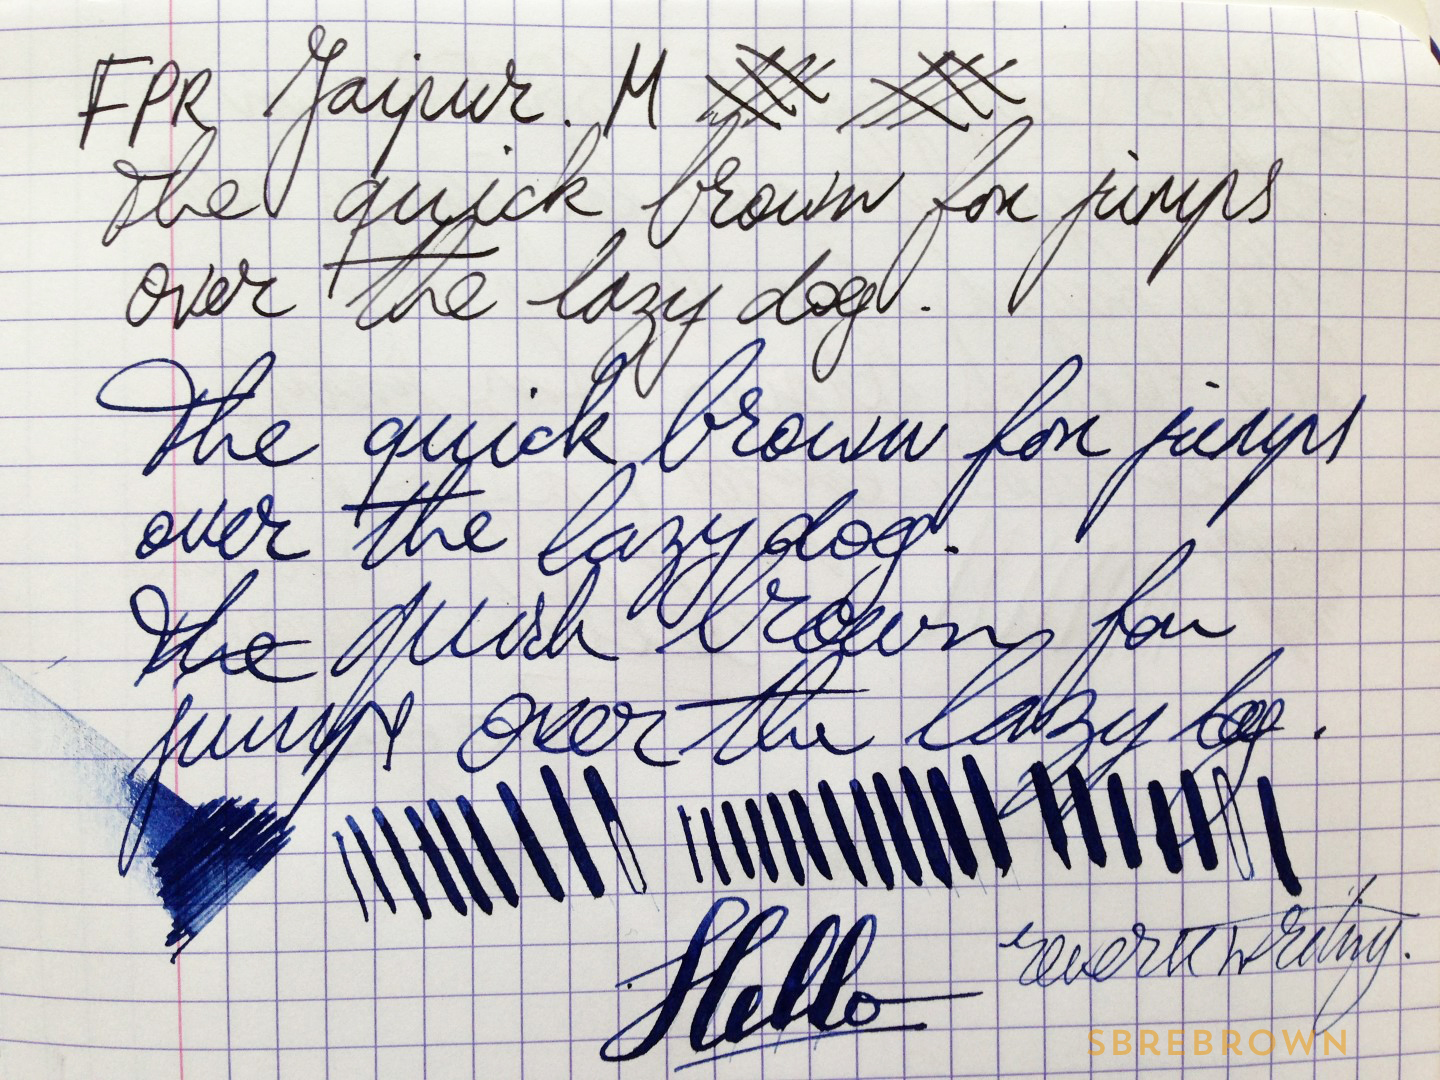 FPR Jaipur. M
the quick brown fox jumps
over the lazy dog.
The quick brown fox jumps
over the lazy dog.
The quick brown fox
jumps over the lazy dog.
Hello
reverse writing.
SBREBROWN